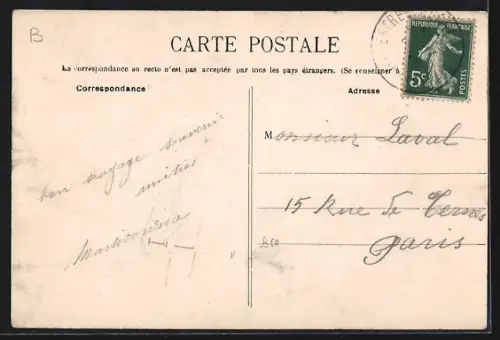 B
CARTE POSTALE
La correspondance au recto n'est pas acceptée par tous les pays étrangers. (Se renseigner à
Correspondance
Adresse
REPUBLIQUE FRANÇAISE
5c
POSTES
bon voyage souvenir
amitiés
Monsieur Laval
15 Rue de Ternes
Paris